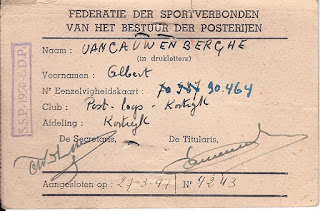 FEDERATIE DER SPORTVERBONDEN
VAN HET BESTUUR DER POSTERIJEN
Naam : VANCAUWENBERGHE
(in drukletters)
Voornamen : Albert
Nr Eenzelvigheidskaart : 90.464
Club : Post - - Kortrijk
Afdeling : Kortrijk
De Secretaris, De Titularis,
Aangesloten op : 27-3-47 Nr 4243
S.S.P. 1950 S.D.P.